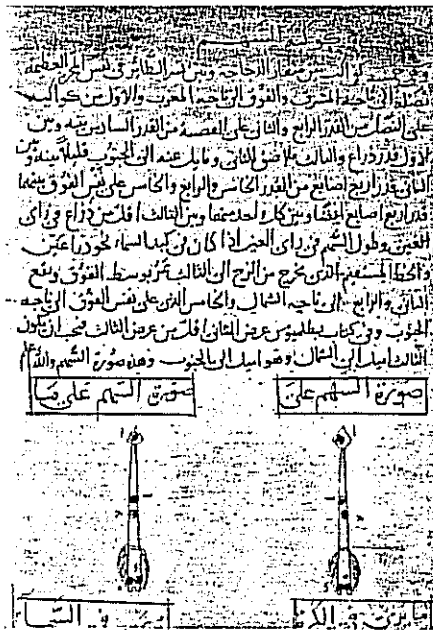 كوكبة السهم
وهي خمسة كواكب بين منقار الدجاجة وبين النسر الطائر في نفس المجرة العظيمة
نصله الى ناحية المشرق والفوق الى ناحية المغرب والاول من كواكبه
على النصل من القدر الرابع والثاني على القصبة من القدر السادس بينه وبين
الاول قدر ذراع والثالث ملاصق الثاني ومايل عنه الى الجنوب قليلا بينه وبين
الثاني قدر اربع اصابع من القدر الخامس والرابع والخامس على نفس الفوق بينهما
قدر اربع اصابع ايضا وبين كل واحد منهما وبين الثالث اقل من ذراع في راى
العين وطول السهم في راى العين اذا كان في كبد السماء نحو ذراعين
والخط المستقيم الذي يخرج من الزج الى الثالث تمر بوسط الفوق ويقع
الثاني والرابع الى ناحية الشمال والخامس الذي على نفس الفوق الى ناحية
الجنوب وفي كتاب بطلميوس عرض الثاني اقل من عرض الثالث فيجب ان يكون
الثالث اميل الى الشمال وهو اميل الى الجنوب وهذه صورة السهم والله اعلم
صورة السهم على
صورة السهم على ما
ما يرى في الكرة
يرى في السماء